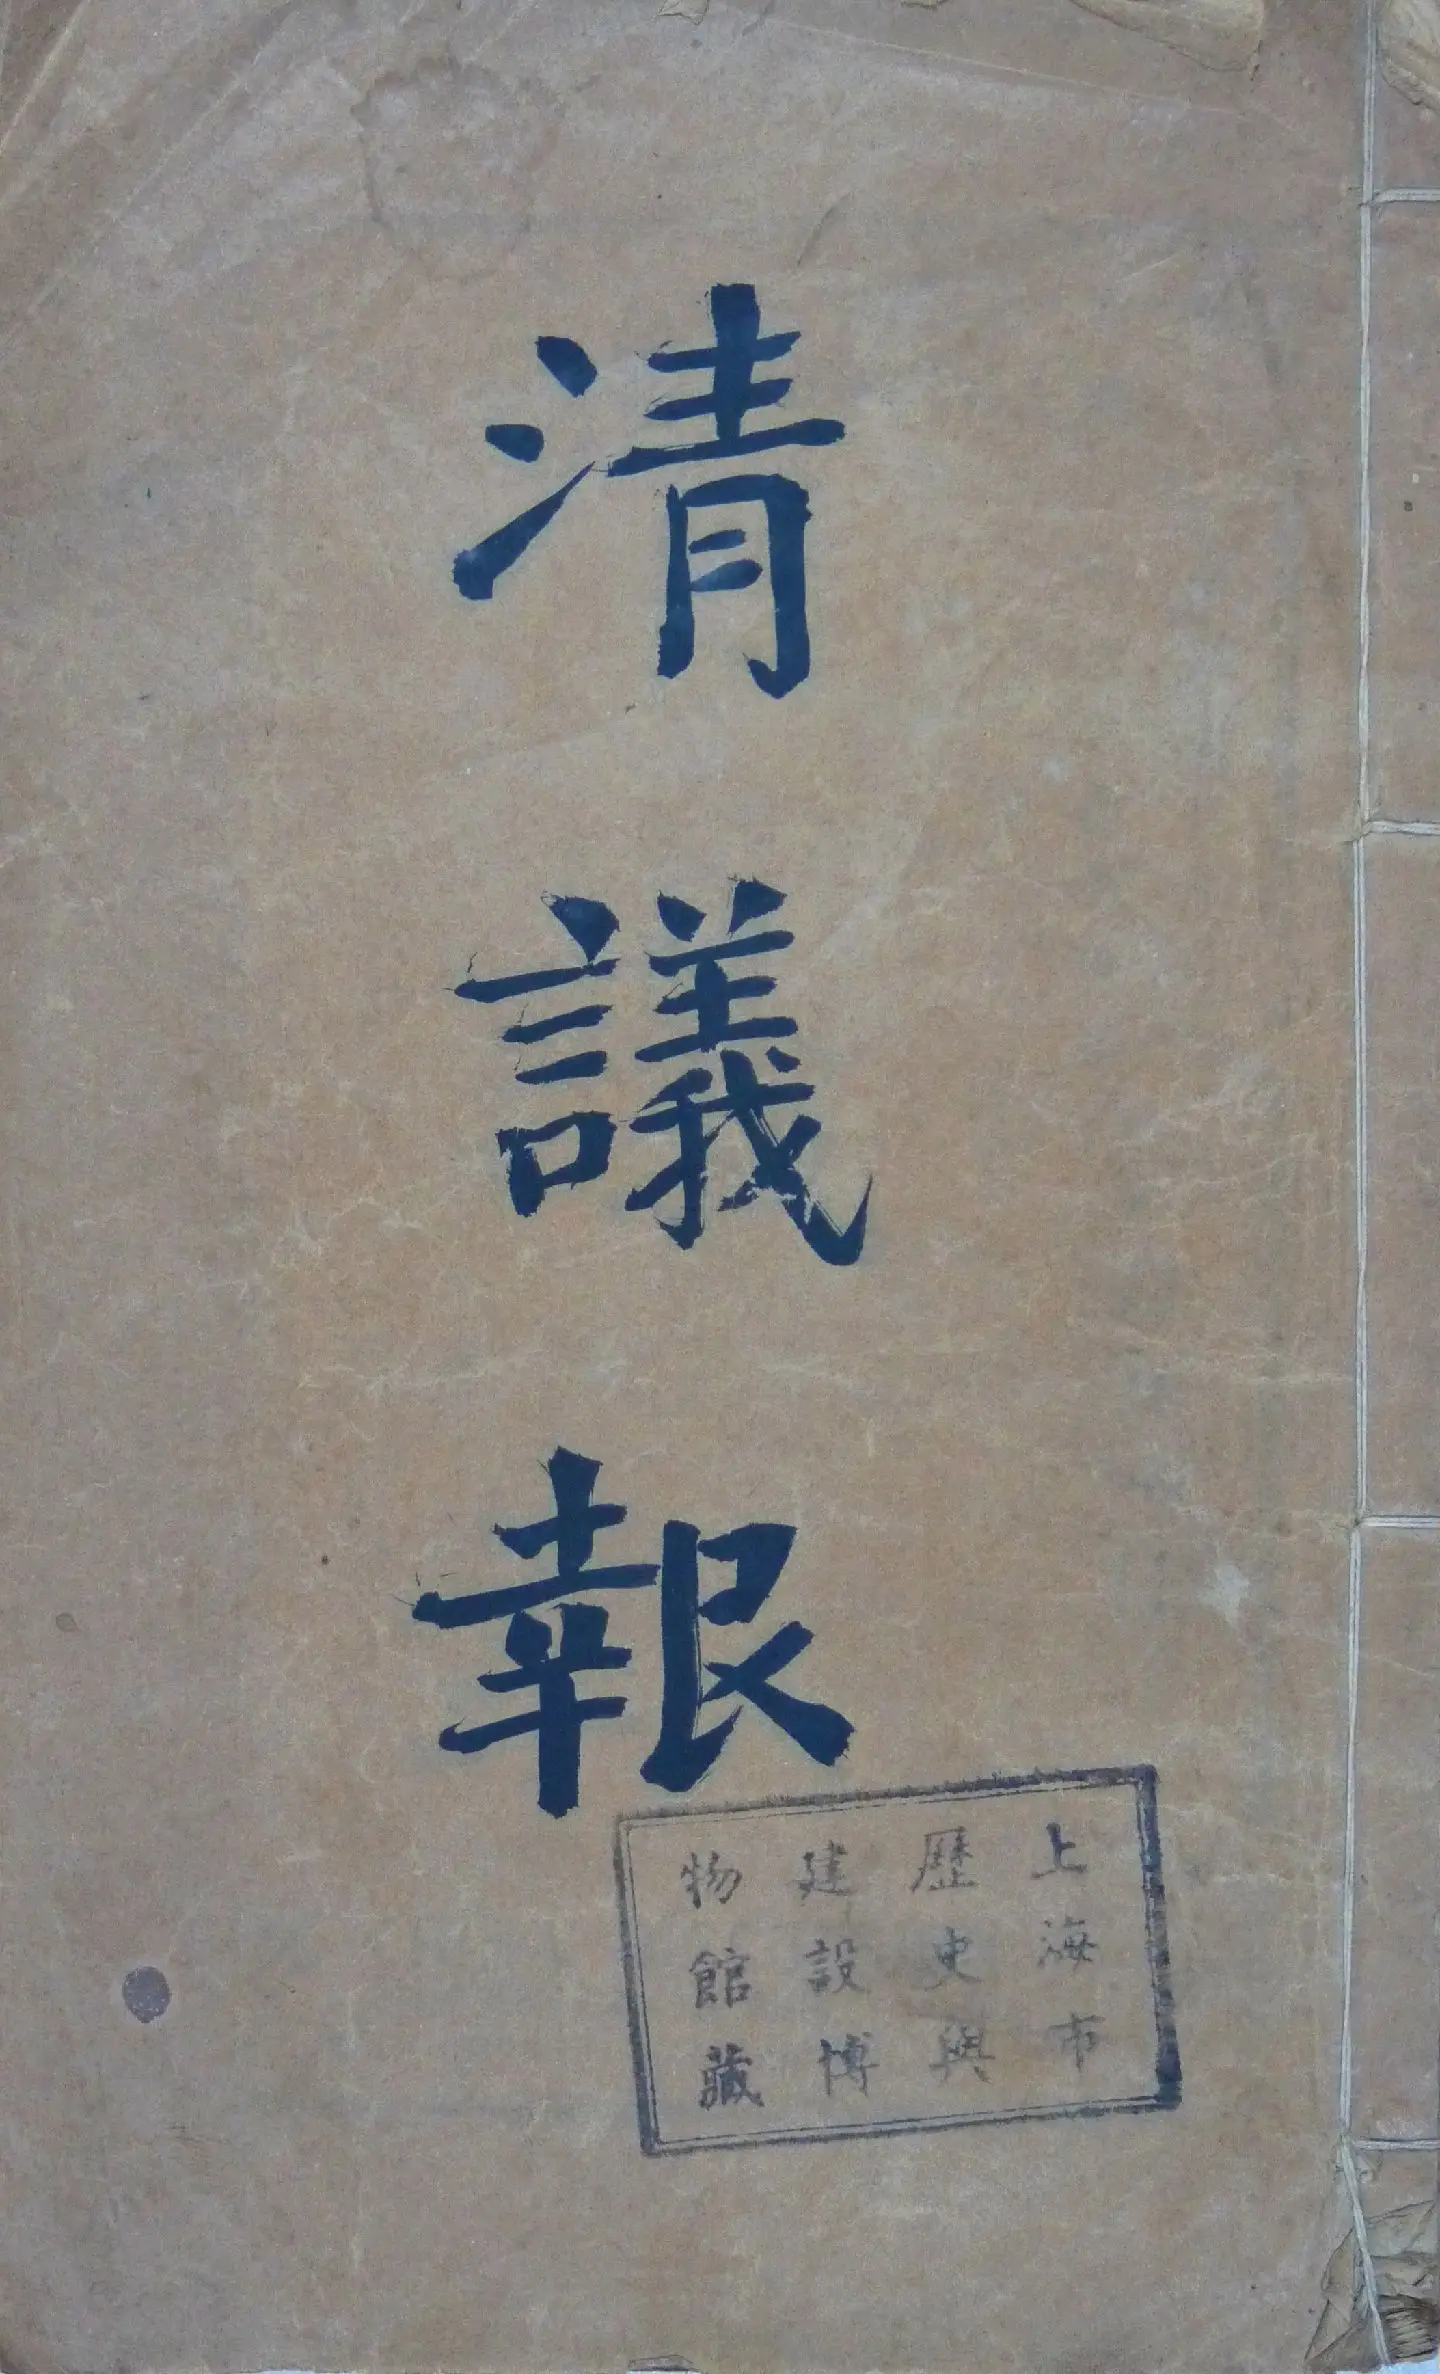 清議報
上海市
歷史與
建設博
物館藏